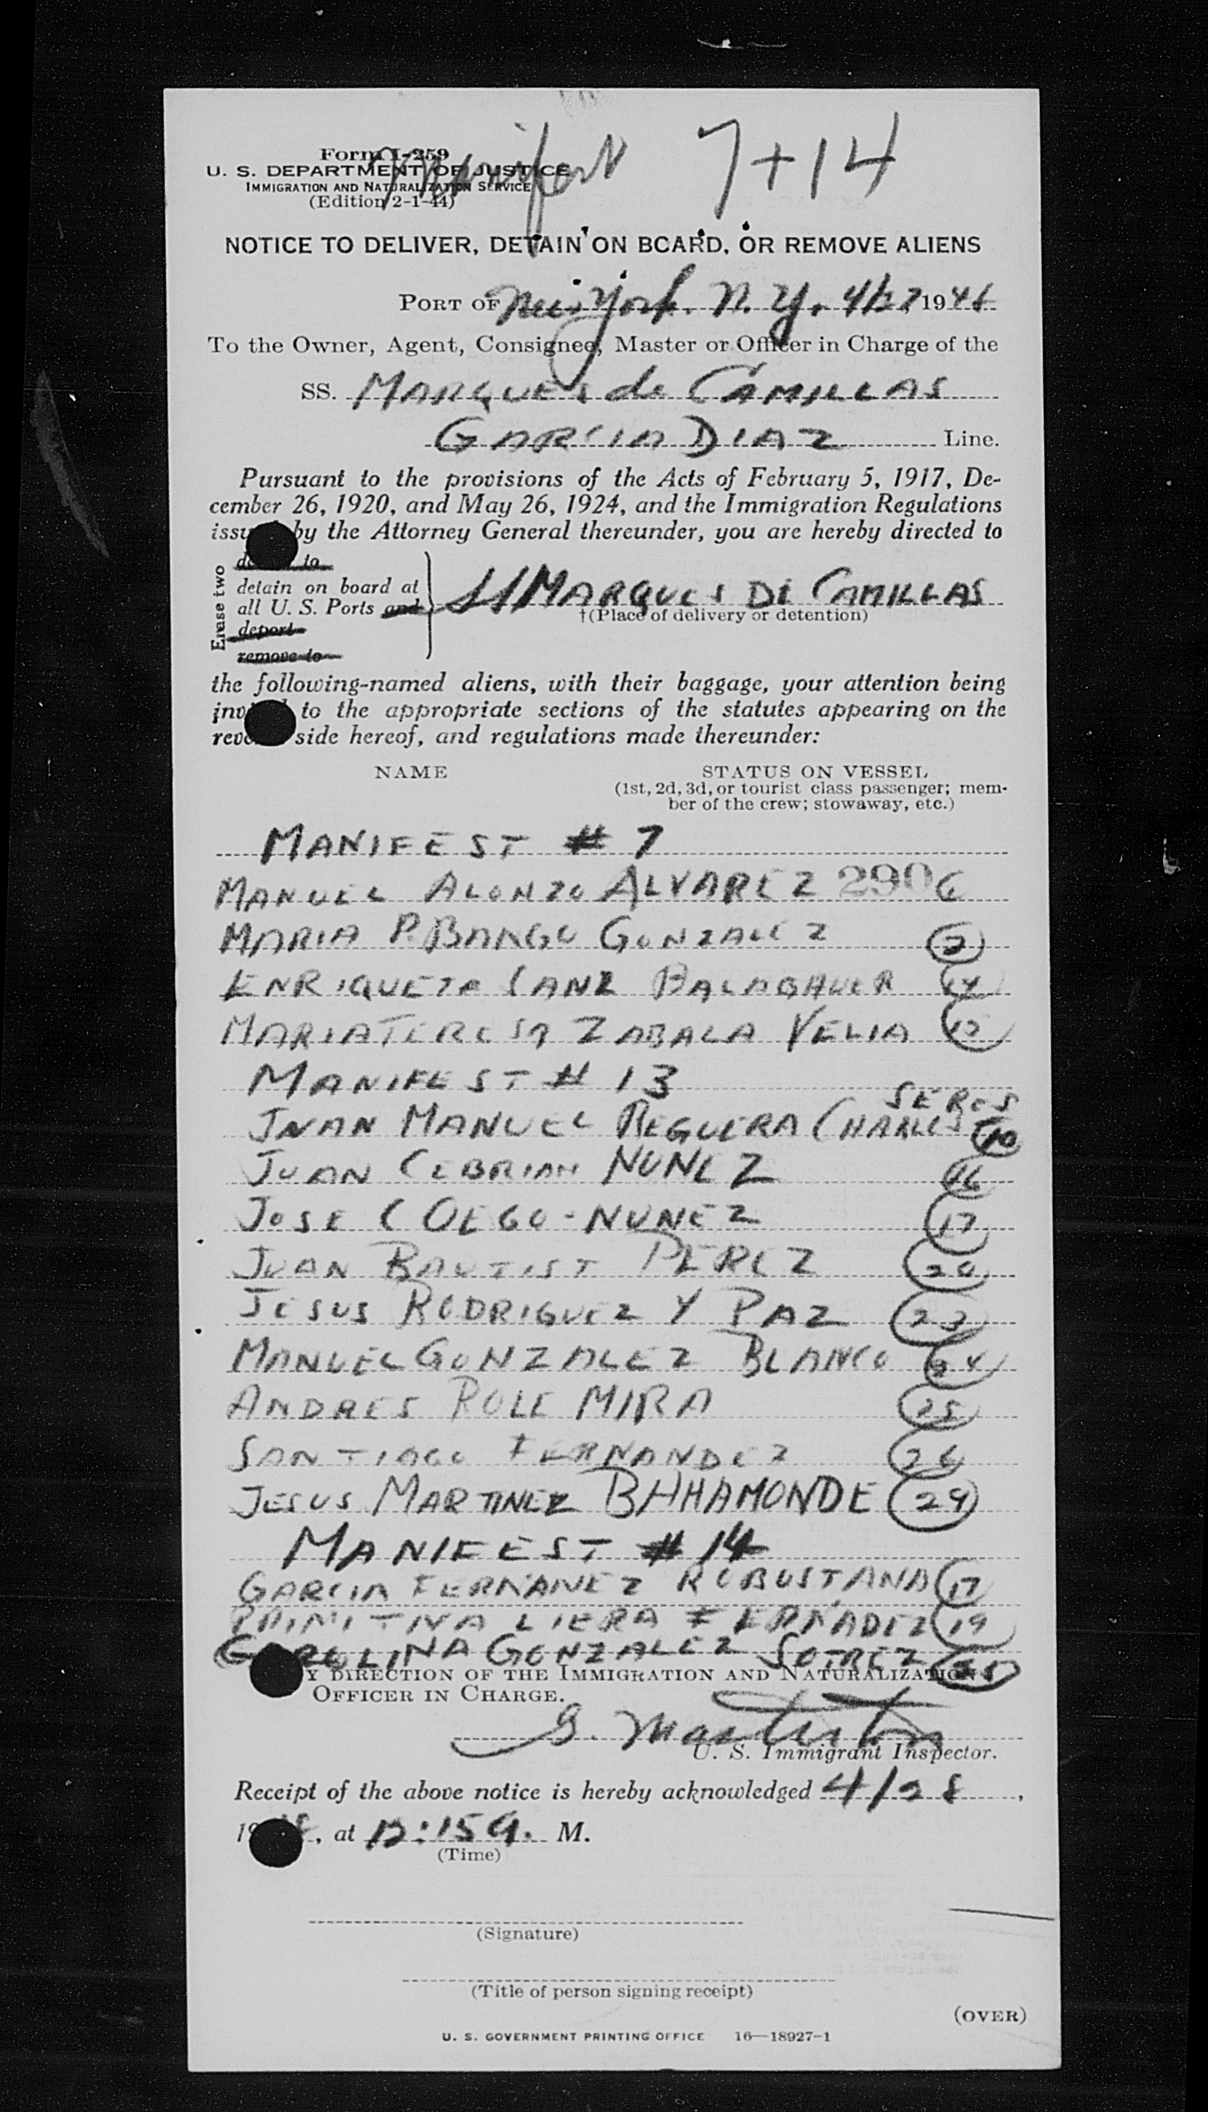 Manifest 7+14
Form I-259
U. S. DEPARTMENT OF JUSTICE
IMMIGRATION AND NATURALIZATION SERVICE
(Edition 2-1-44)
NOTICE TO DELIVER, DETAIN ON BOARD, OR REMOVE ALIENS
PORT OF New York, N. Y. 4/27 1946
To the Owner, Agent, Consignee, Master or Officer in Charge of the
SS. MARQUES de CAMILLAS
GARCIA DIAZ Line.
Pursuant to the provisions of the Acts of February 5, 1917, De-
cember 26, 1920, and May 26, 1924, and the Immigration Regulations
by the Attorney General thereunder, you are hereby directed to
to
Erase two
detain on board at
all U. S. Ports and
deport
remove to
SS MARQUES DE CAMILLAS
†(Place of delivery or detention)
the following-named aliens, with their baggage, your attention being
to the appropriate sections of the statutes appearing on the
side hereof, and regulations made thereunder:
NAME STATUS ON VESSEL
(1st, 2d, 3d, or tourist class passenger; mem-
ber of the crew; stowaway, etc.)
MANIFEST # 7
MANUEL ALONZO ALVAREZ 290 6
MARIA P. BANGO GONZALEZ 2
ENRIQUETA SANZ BALAGAUER 14
MARIA TERESA ZABALA VELIA 15
MANIFEST # 13
JUAN MANUEL REGUERA CHARLES 10
JUAN CEBRIAN NUNEZ 16
JOSE COEGO-NUNEZ 17
JUAN BAUTIST PEREZ 20
JESUS RODRIGUEZ Y PAZ 23
MANUEL GONZALEZ BLANCO 24
ANDRES ROLL MIRA 25
SANTIAGO FERNANDEZ 26
JESUS MARTINEZ BHHAMONDE 29
MANIFEST # 14
GARCIA FERNANEZ ROBUSTANA 17
PRIMITIVA LIERA FERNADEZ 19
CAROLINA GONZALEZ SOTREZ
Y DIRECTION OF THE IMMIGRATION AND NATURALIZATION
OFFICER IN CHARGE.
G. Masterton
U. S. Immigrant Inspector.
Receipt of the above notice is hereby acknowledged 4/28,
, at 12:15 A. M.
(Time)
(Signature)
(Title of person signing receipt)
(OVER)
U. S. GOVERNMENT PRINTING OFFICE 16—18927-1